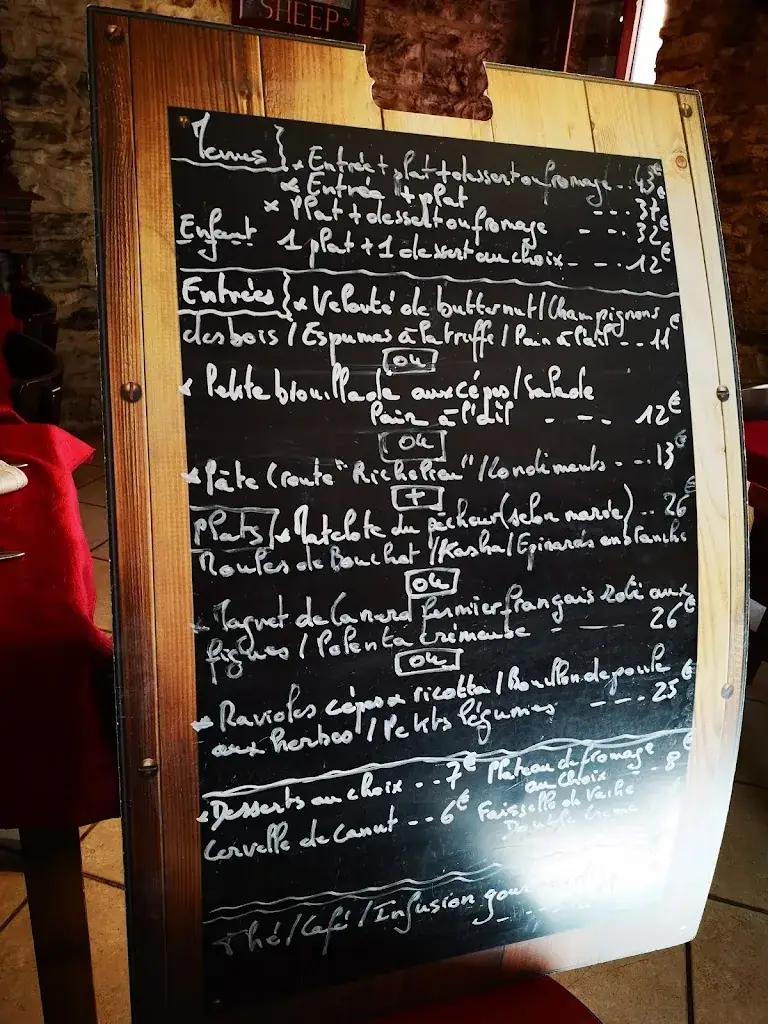 SHEEP
Menus } x Entrée + plat + dessert ou fromage .. 43€
x Entrée + plat -- - 37€
x Plat + dessert ou fromage - -- 32€
Enfant 1 plat + 1 dessert au choix - -- . 12€
Entrées } x Velouté de butternut / Champignons
des bois / Espumas à la truffe / Pain à l'ail -- 11€
ou
x Petite brouillade aux cépes / Salade
Pain à l'ail - -- 12€
ou
x Pâte Croute "Richelieu" / Condiments - -- 13€
+
Plats x Matelote du pêcheur (selon marée) -- 26€
Moules de Bouchot / Kasha / Epinards en branche
ou
x Magret de Canard fermier français roti aux
figues / Polenta crémeuse - -- 26€
ou
x Ravioles cépes x ricotta / Bouillon de poule
aux herbes / Petits légumes - -- 25€
x Desserts au choix -- 7€ Plateau de fromage
au choix -- 8€
Cervelle de Canut -- 6€ Faisselle de Vache
Double Crème
Thé / Café / Infusion